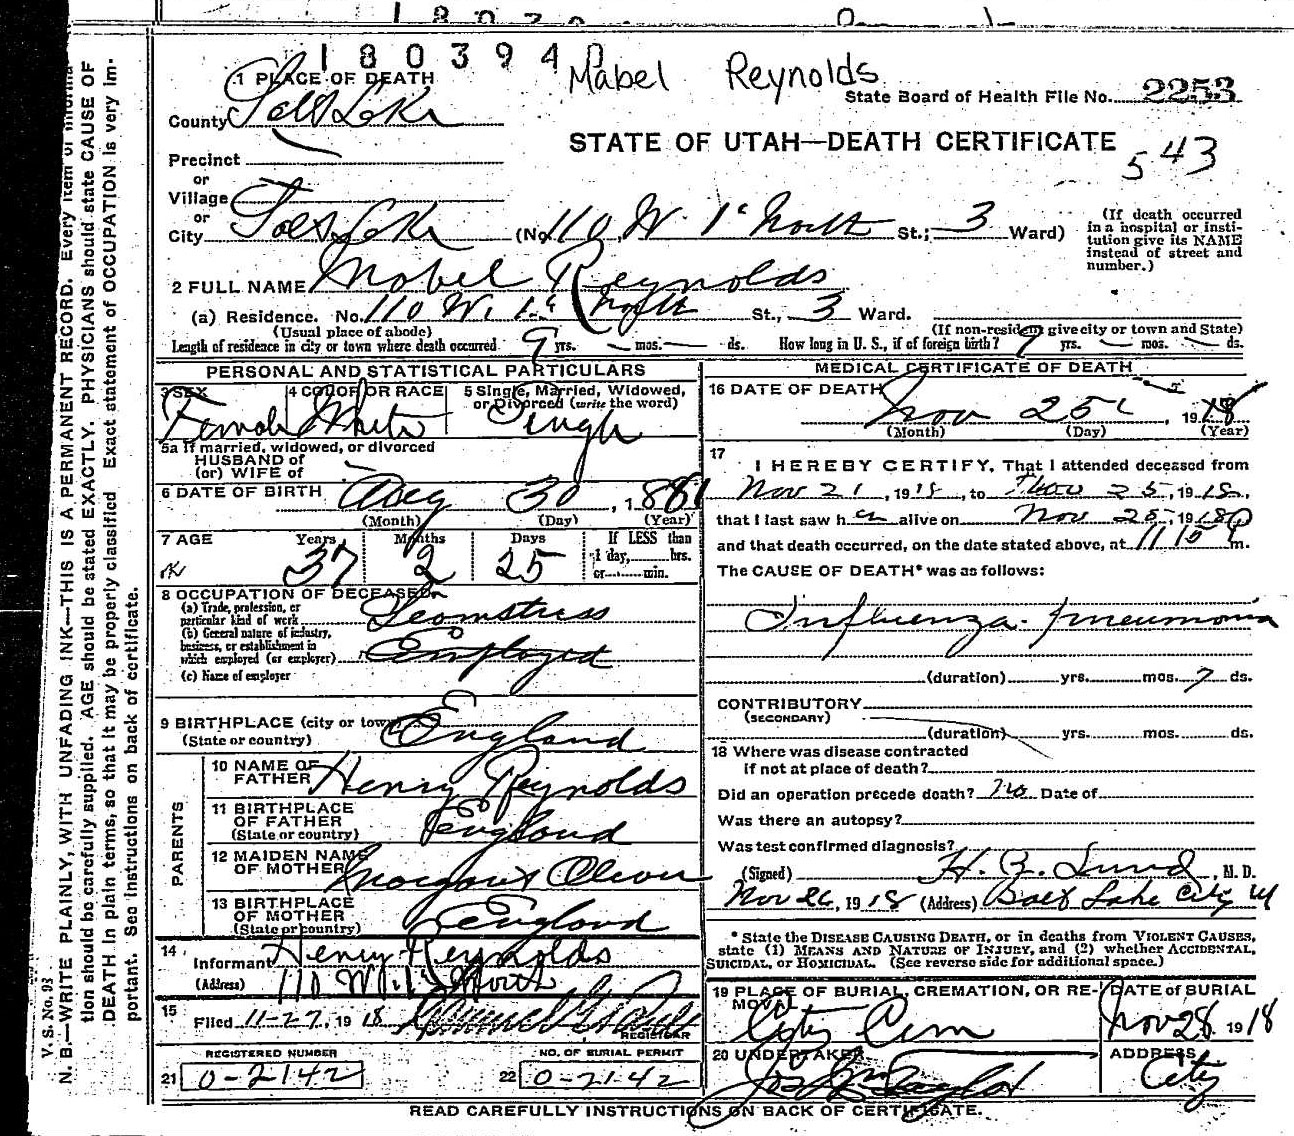 1803940
Mabel Reynolds
1 PLACE OF DEATH
State Board of Health File No. 2253
County Salt Lake
STATE OF UTAH—DEATH CERTIFICATE
543
Precinct
or
Village
or
City Salt Lake (No. 110 W 1st North St.; 3 Ward)
(If death occurred in a hospital or insti-
tution give its NAME
instead of street and
number.)
2 FULL NAME Mabel Reynolds
(a) Residence. No. 110 W. 1st North St., 3 Ward.
(Usual place of abode) (If non-resident give city or town and State)
Length of residence in city or town where death occurred 9 yrs. — mos. — ds. How long in U. S., if of foreign birth? 9 yrs. — mos. — ds.
PERSONAL AND STATISTICAL PARTICULARS
3 SEX Female
4 COLOR OR RACE White
5 Single, Married, Widowed,
or Divorced (write the word)
Single
5a If married, widowed, or divorced
HUSBAND of
(or) WIFE of
6 DATE OF BIRTH Aug 30, 1881
(Month) (Day) (Year)
7 AGE Years Months Days If LESS than
1 day, hrs.
or min.
OK 37 2 25
8 OCCUPATION OF DECEASED
(a) Trade, profession, or
particular kind of work Seamstress
(b) General nature of industry,
business, or establishment in
which employed (or employer) Employed
(c) Name of employer
9 BIRTHPLACE (city or town)
(State or country) England
PARENTS
10 NAME OF
FATHER Henry Reynolds
11 BIRTHPLACE
OF FATHER
(State or country) England
12 MAIDEN NAME
OF MOTHER Margaret Oliver
13 BIRTHPLACE
OF MOTHER
(State or country) England
14 Informant Henry Reynolds
(Address) 110 W. 1st North
15 Filed 11-27, 1918
REGISTRAR
REGISTERED NUMBER
21 0-2142
NO. OF BURIAL PERMIT
22 0-2142
MEDICAL CERTIFICATE OF DEATH
16 DATE OF DEATH Nov 25, 1918
(Month) (Day) (Year)
17 I HEREBY CERTIFY, That I attended deceased from
Nov 21, 1918, to Nov 25, 1918,
that I last saw her alive on Nov 25, 1918
and that death occurred, on the date stated above, at 11 10 P m.
The CAUSE OF DEATH* was as follows:
Influenza-pneumonia
(duration) yrs. mos. 7 ds.
CONTRIBUTORY
(SECONDARY)
(duration) yrs. mos. ds.
18 Where was disease contracted
if not at place of death?
Did an operation precede death? No Date of
Was there an autopsy?
Was test confirmed diagnosis?
(Signed) H. Z. Lund, M. D.
Nov 26, 1918 (Address) Salt Lake City Ut
* State the DISEASE CAUSING DEATH, or in deaths from VIOLENT CAUSES,
state (1) MEANS AND NATURE OF INJURY, and (2) whether ACCIDENTAL,
SUICIDAL, or HOMICIDAL. (See reverse side for additional space.)
19 PLACE OF BURIAL, CREMATION, OR RE-
MOVAL City Cem
DATE of BURIAL
Nov 28 1918
20 UNDERTAKER
Jos Wm Taylor
ADDRESS
City
READ CAREFULLY INSTRUCTIONS ON BACK OF CERTIFICATE.
V. S. No. 93
N. B.—WRITE PLAINLY, WITH UNFADING INK—THIS IS A PERMANENT RECORD. Every item of informa-
tion should be carefully supplied. AGE should be stated EXACTLY. PHYSICIANS should state CAUSE OF
DEATH in plain terms, so that it may be properly classified. Exact statement of OCCUPATION is very im-
portant. See instructions on back of certificate.